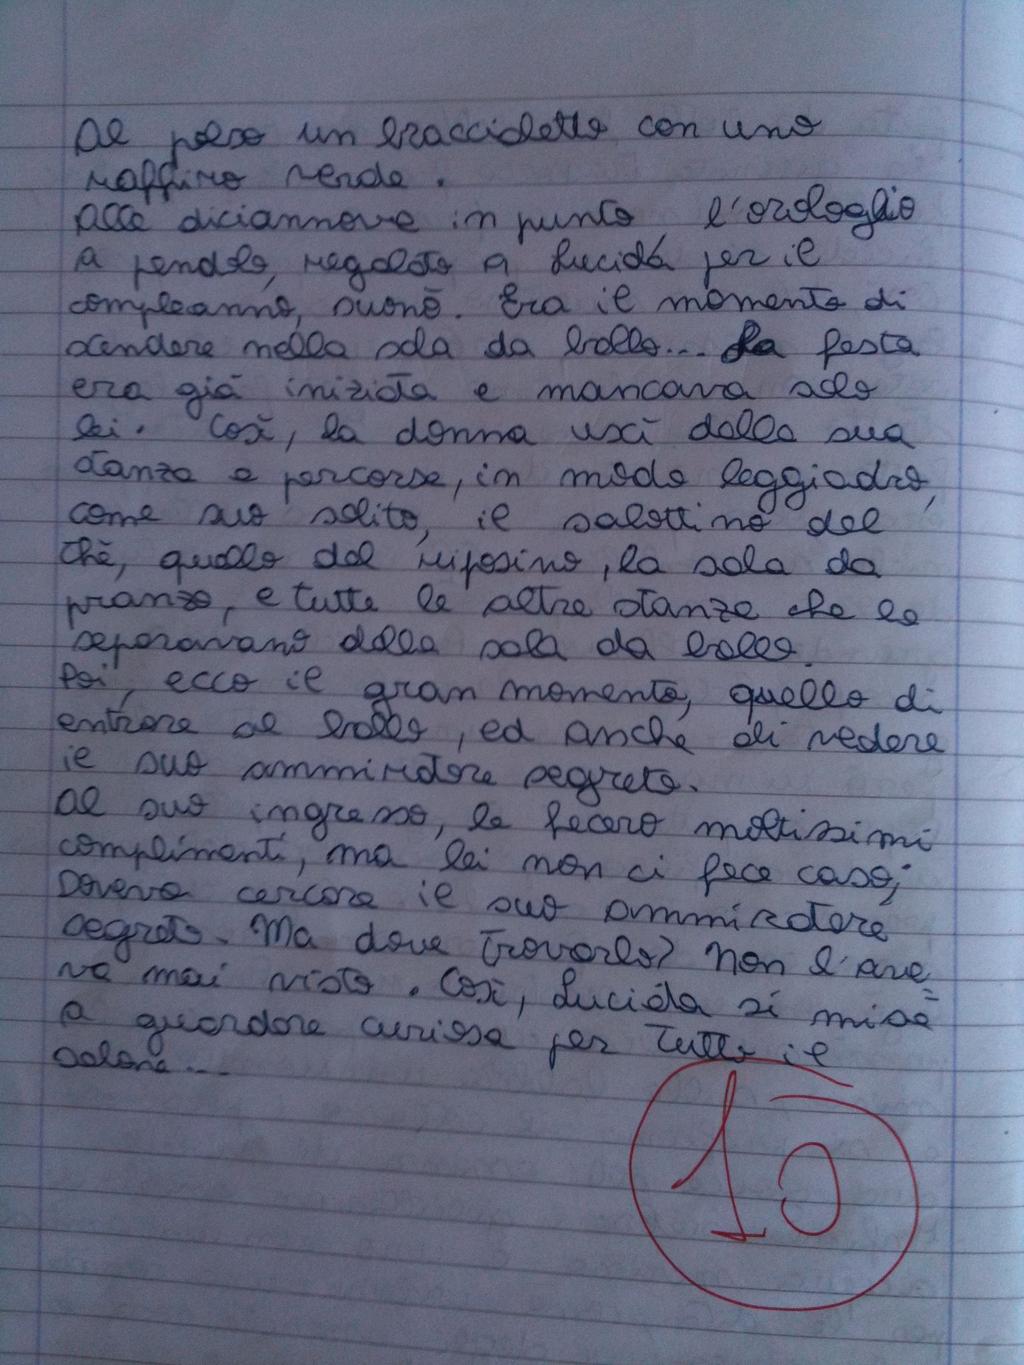 Al polso un braccialetto con uno
zaffiro verde.
Alle diciannove in punto l'orologio
a pendolo, regalato a Lucida per il
compleanno, suonò. Era il momento di
scendere nella sala da ballo... La festa
era già iniziata e mancava solo
lei. Così, la donna uscì dalla sua
stanza e percorse, in modo leggiadro,
come suo solito, il salottino del
thè, quello del riposino, la sala da
pranzo, e tutte le altre stanze che la
separavano dalla sala da ballo.
Poi, ecco il gran momento, quello di
entrare al ballo, ed anche di vedere
il suo ammiratore segreto.
Al suo ingresso, le fecero moltissimi
complimenti, ma lei non ci fece caso;
Doveva cercare il suo ammiratore
segreto. Ma dove trovarlo? Non l'ave=
va mai visto. Così, Lucida si mise
a guardare curiosa per tutto il
salone...
10